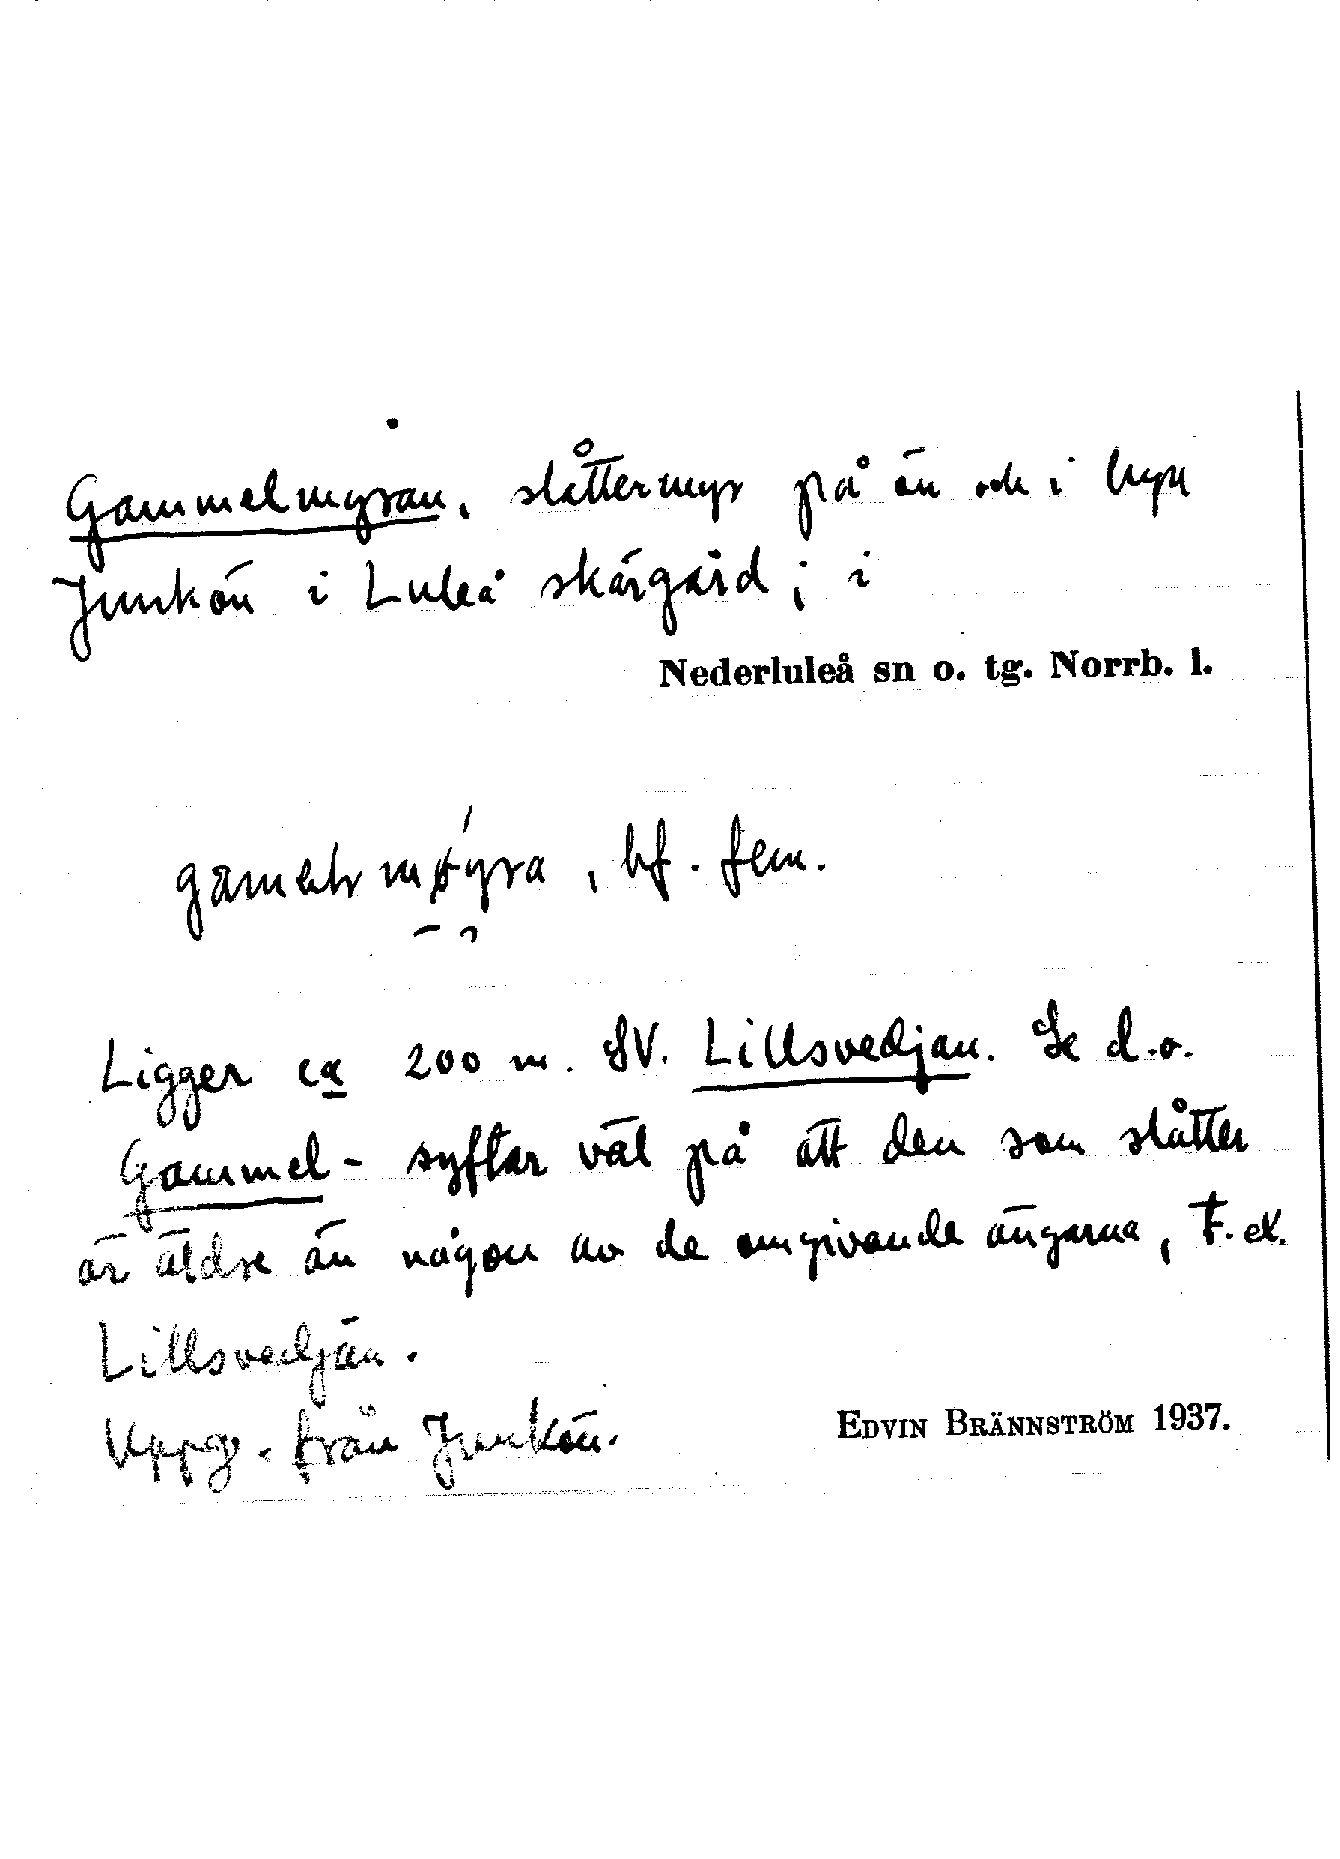 Gammelmyran, slåttermyr på ön och i byn
Junkön i Luleå skärgård; i
Nederluleå sn o. tg. Norrb. l.
, bf. fem.
Ligger ca 200 m. SV. Lillsvedjan. Se d.o.
Gammel- syftar väl på att den som slåtter
är äldre än någon av de omgivande ängarna, t.ex.
Lillsvedjan.
Uppg. från Junkön.
EDVIN BRÄNNSTRÖM 1937.